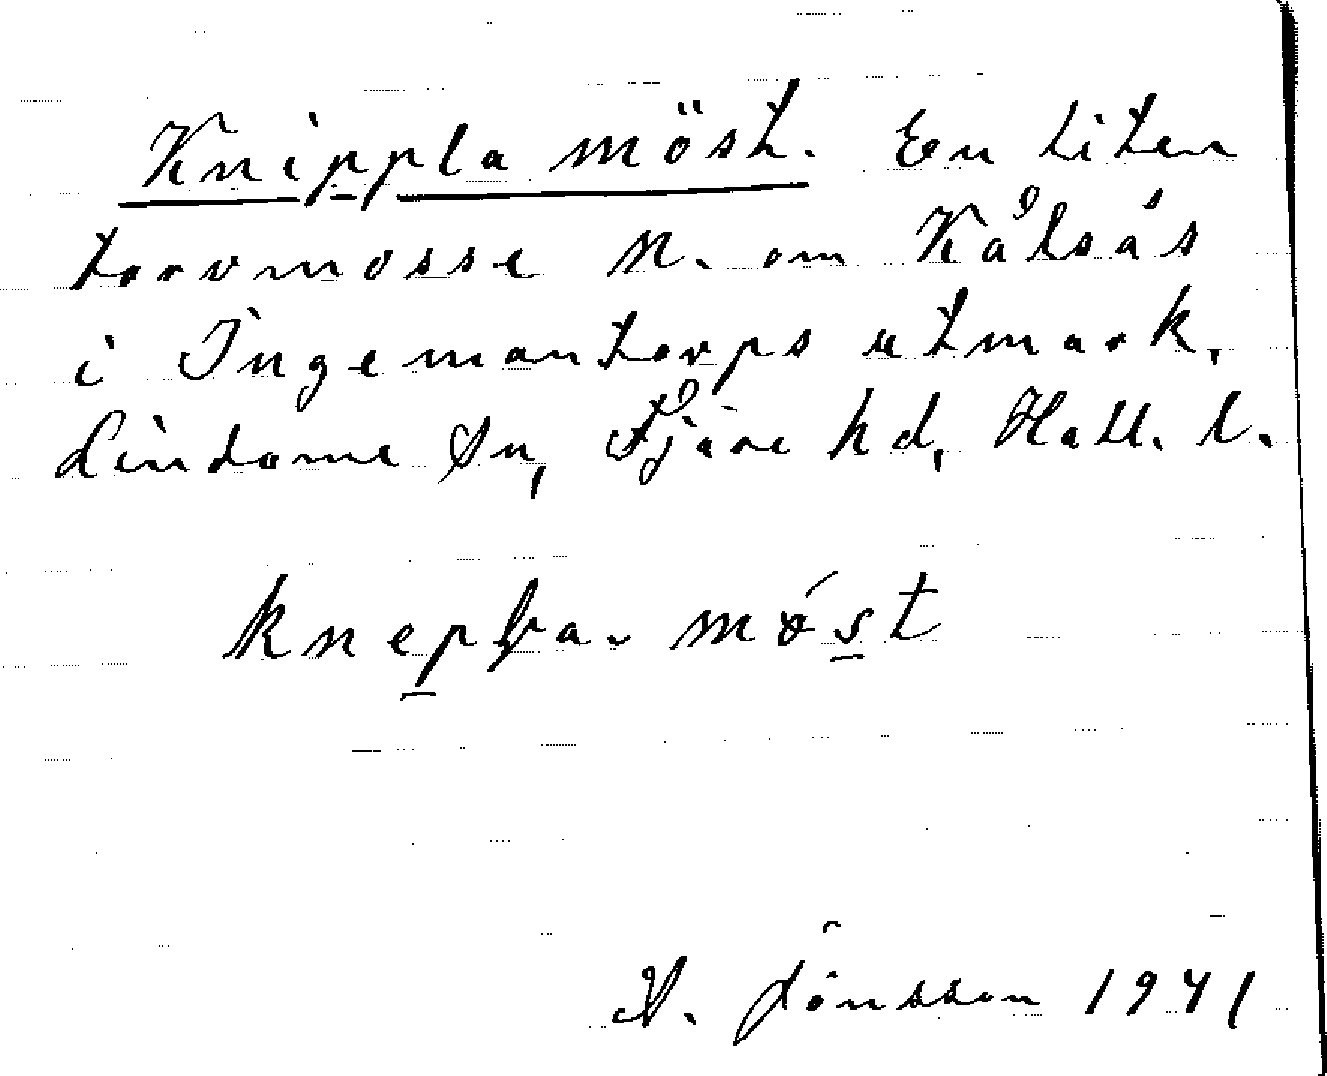 Knippla möst. En liten
torvmosse N. om Kålsås
i Ingemantorps utmark,
Lindome Sn, Fjäre hd, Hall. l.
knepla- möst
V. Jönsson 1941